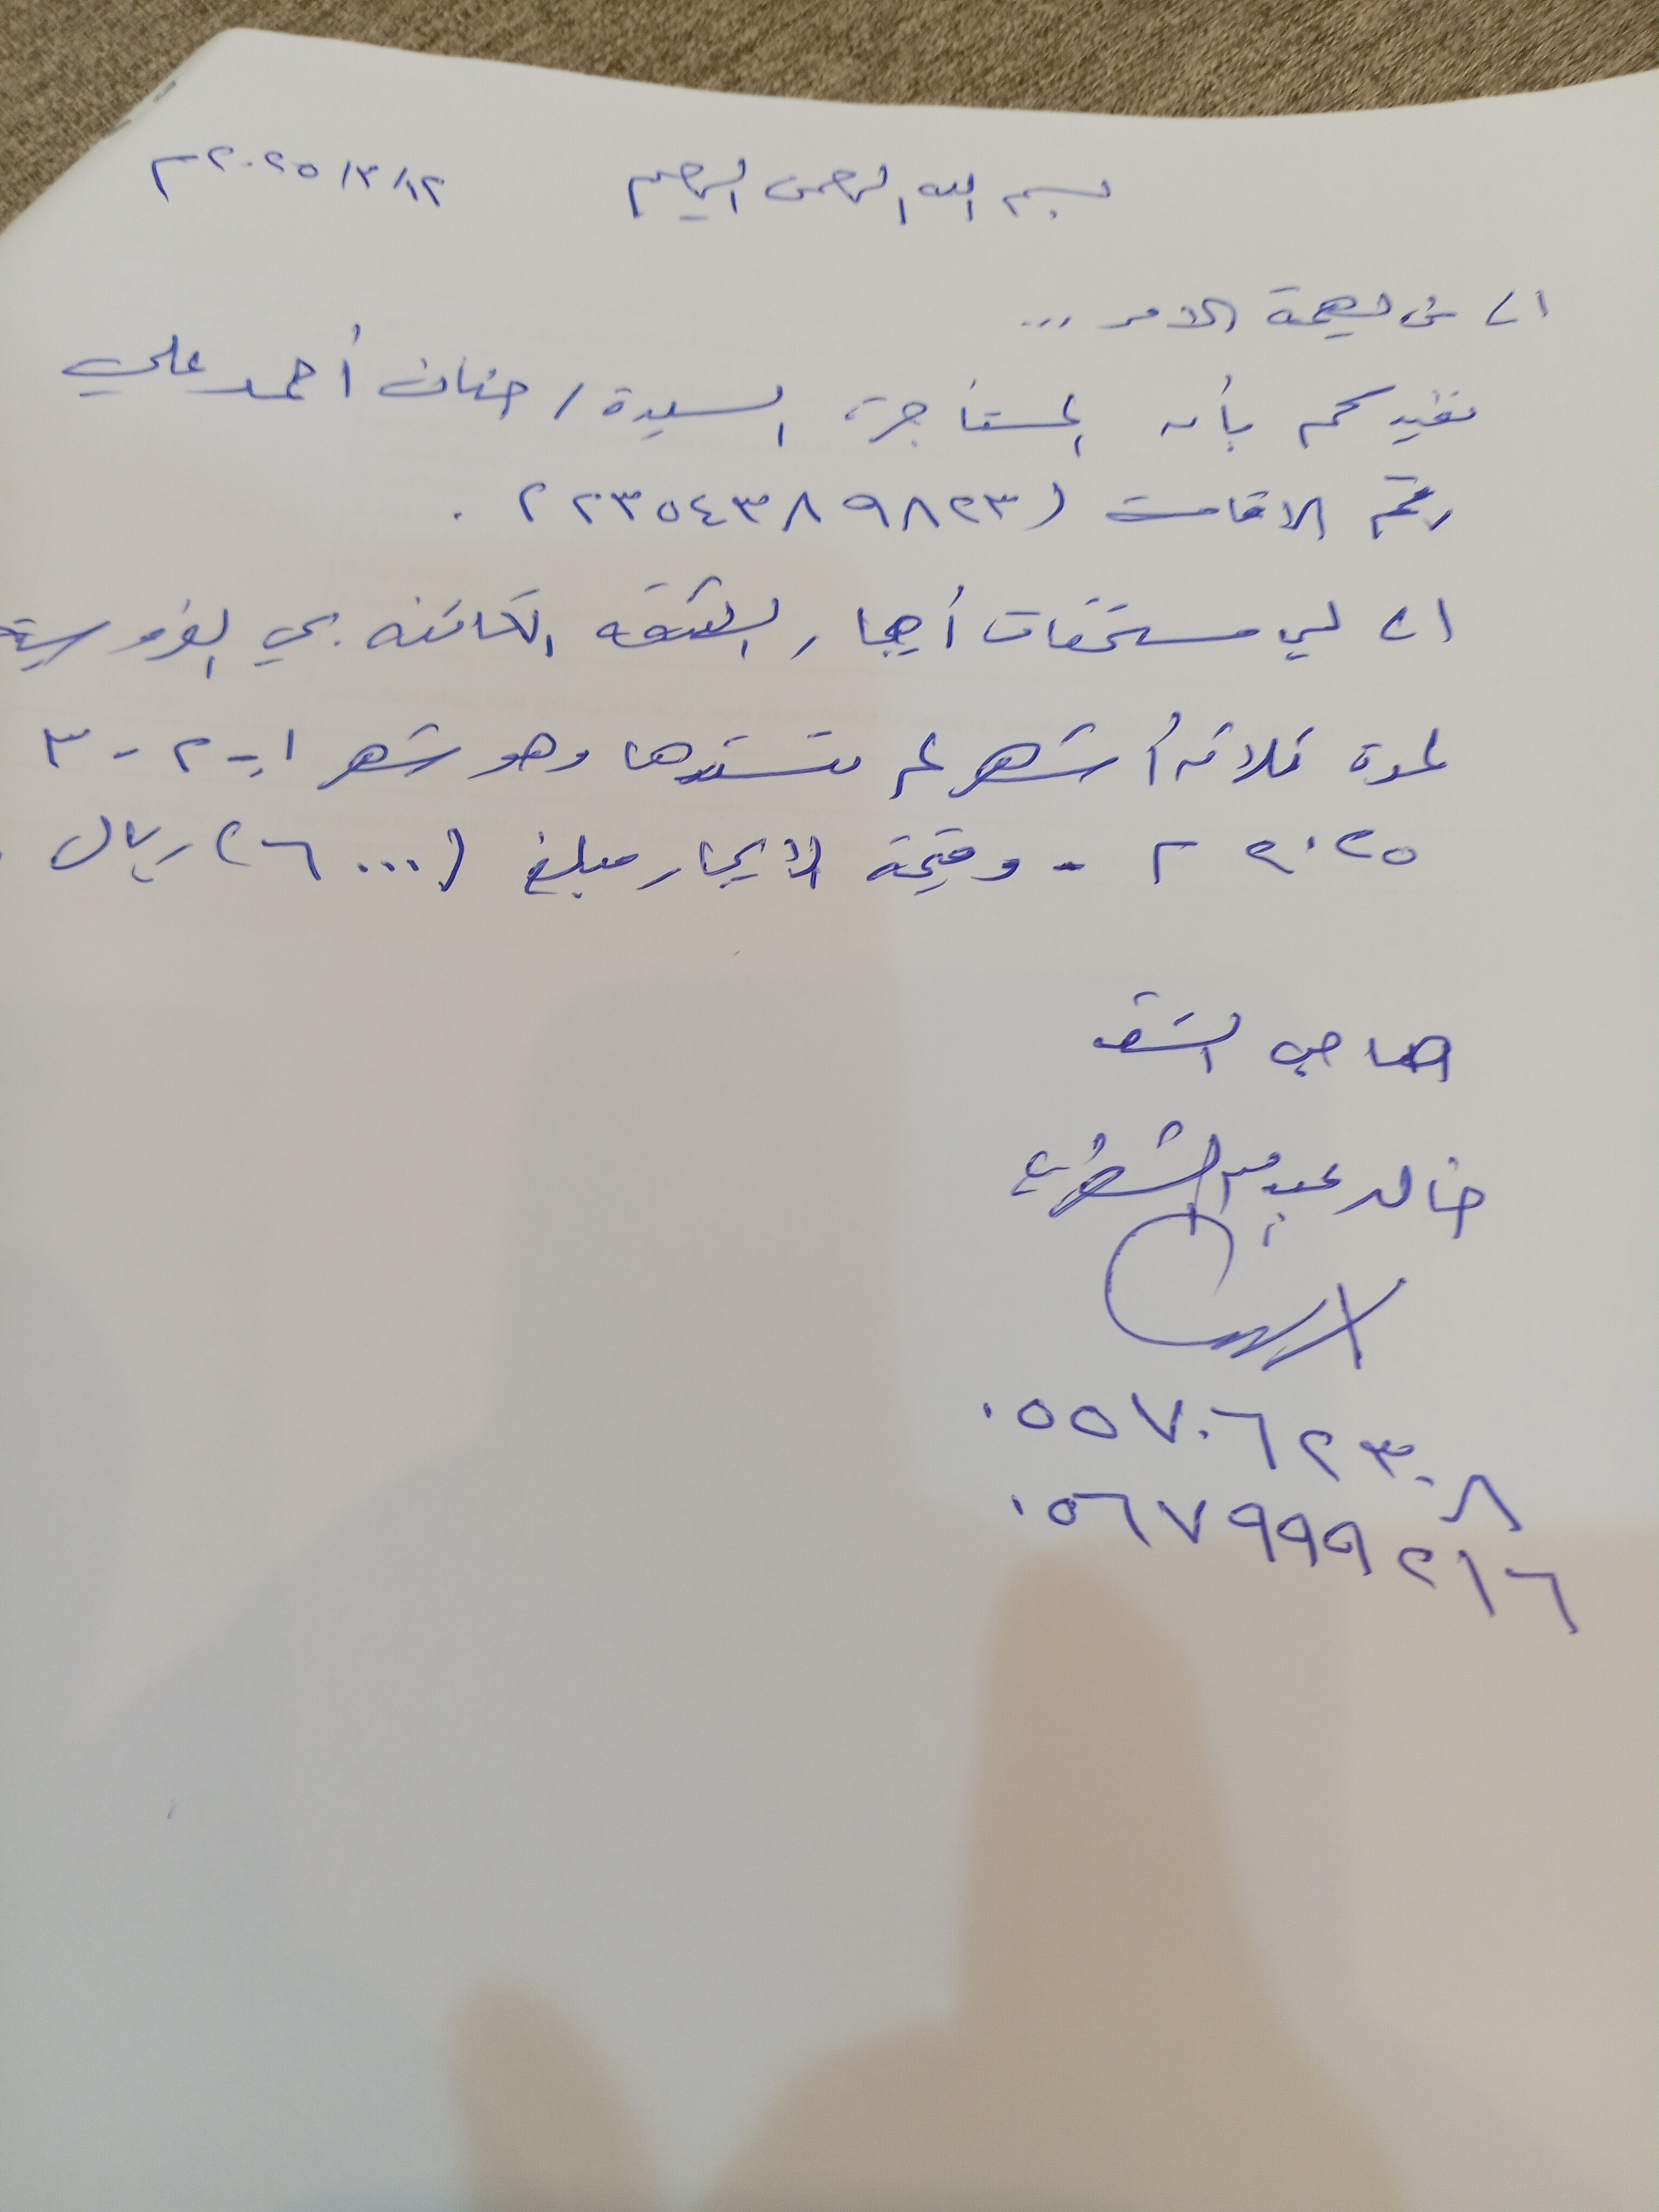 بسم الله الرحمن الرحيم ١٢/٣/٢٠٢٥م
الى من يهمة الامر ...
نفيدكم بأن المستأجرة السيدة / حنان أحمد علي
رقم الاقامة (٢٢٣٥٤٣٨٩٨٢٣ .
ان لي مستحقات أيجار الشقه الكائنه بحي الفروسية
لمدة ثلاثة أشهر لم تسددها وهو شهر ١-٢-٣
٢٠٢٥م - وقيمة الايجار مبلغ (٢٦٠٠٠) ريال .
صاحب الشقه
خالد عبيد
٠٥٥٧٠٦٢٣٠٨
٠٥٦٧٩٩٩٢١٦